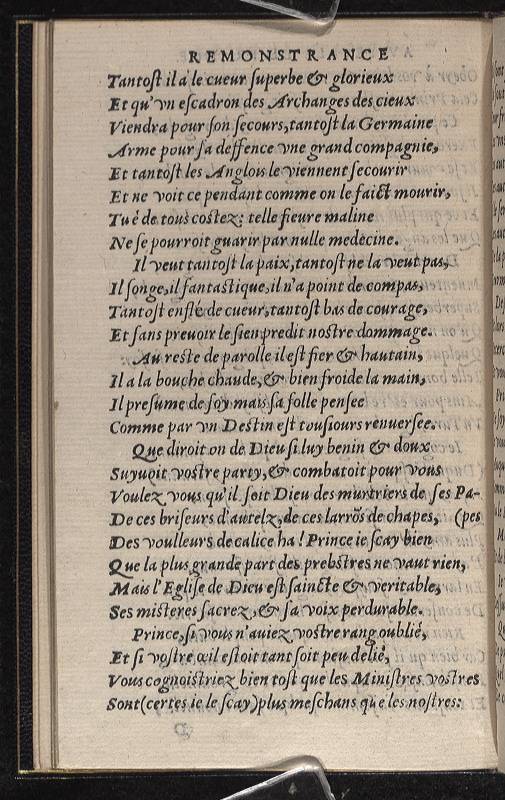 REMONSTRANCE
Tantoſt il a le cueur ſuperbe & glorieux
Et qu'vn eſcadron des Archanges des cieux
Viendra pour ſon ſecours, tantoſt la Germaine
Arme pour ſa deffence vne grand compagnie,
Et tantoſt les Anglois le viennent ſecourir
Et ne voit ce pendant comme on le faict mourir,
Tué de tous coſtez: telle fieure maline
Ne ſe pourroit guarir par nulle medecine.
Il veut tantoſt la paix, tantoſt ne la veut pas,
Il ſonge, il fantaſtique, il n'a point de compas,
Tantoſt enflé de cueur, tantoſt bas de courage,
Et ſans preuoir le ſien predit noſtre dommage.
Au reſte de parolle il eſt fier & hautain,
Il a la bouche chaude, & bien froide la main,
Il preſume de ſoy mais ſa folle penſee
Comme par vn Deſtin eſt touſiours renuerſee.
Que diroit on de Dieu ſi luy benin & doux
Suyuoit voſtre party, & combatoit pour vous
Voulez vous qu'il ſoit Dieu des murtriers de ſes Pa-
De ces briſeurs d'autelz, de ces larrōs de chapes, (pes
Des voulleurs de calice ha! Prince ie ſcay bien
Que la plus grande part des prebſtres ne vaut rien,
Mais l'Egliſe de Dieu eſt ſaincte & veritable,
Ses miſteres ſacrez, & ſa voix perdurable.
Prince, ſi vous n'auiez voſtre rang oublié,
Et ſi voſtre œil eſtoit tant ſoit peu delié,
Vous cognoiſtriez bien toſt que les Miniſtres voſtres
Sont (certes ie le ſcay) plus meſchans que les noſtres: